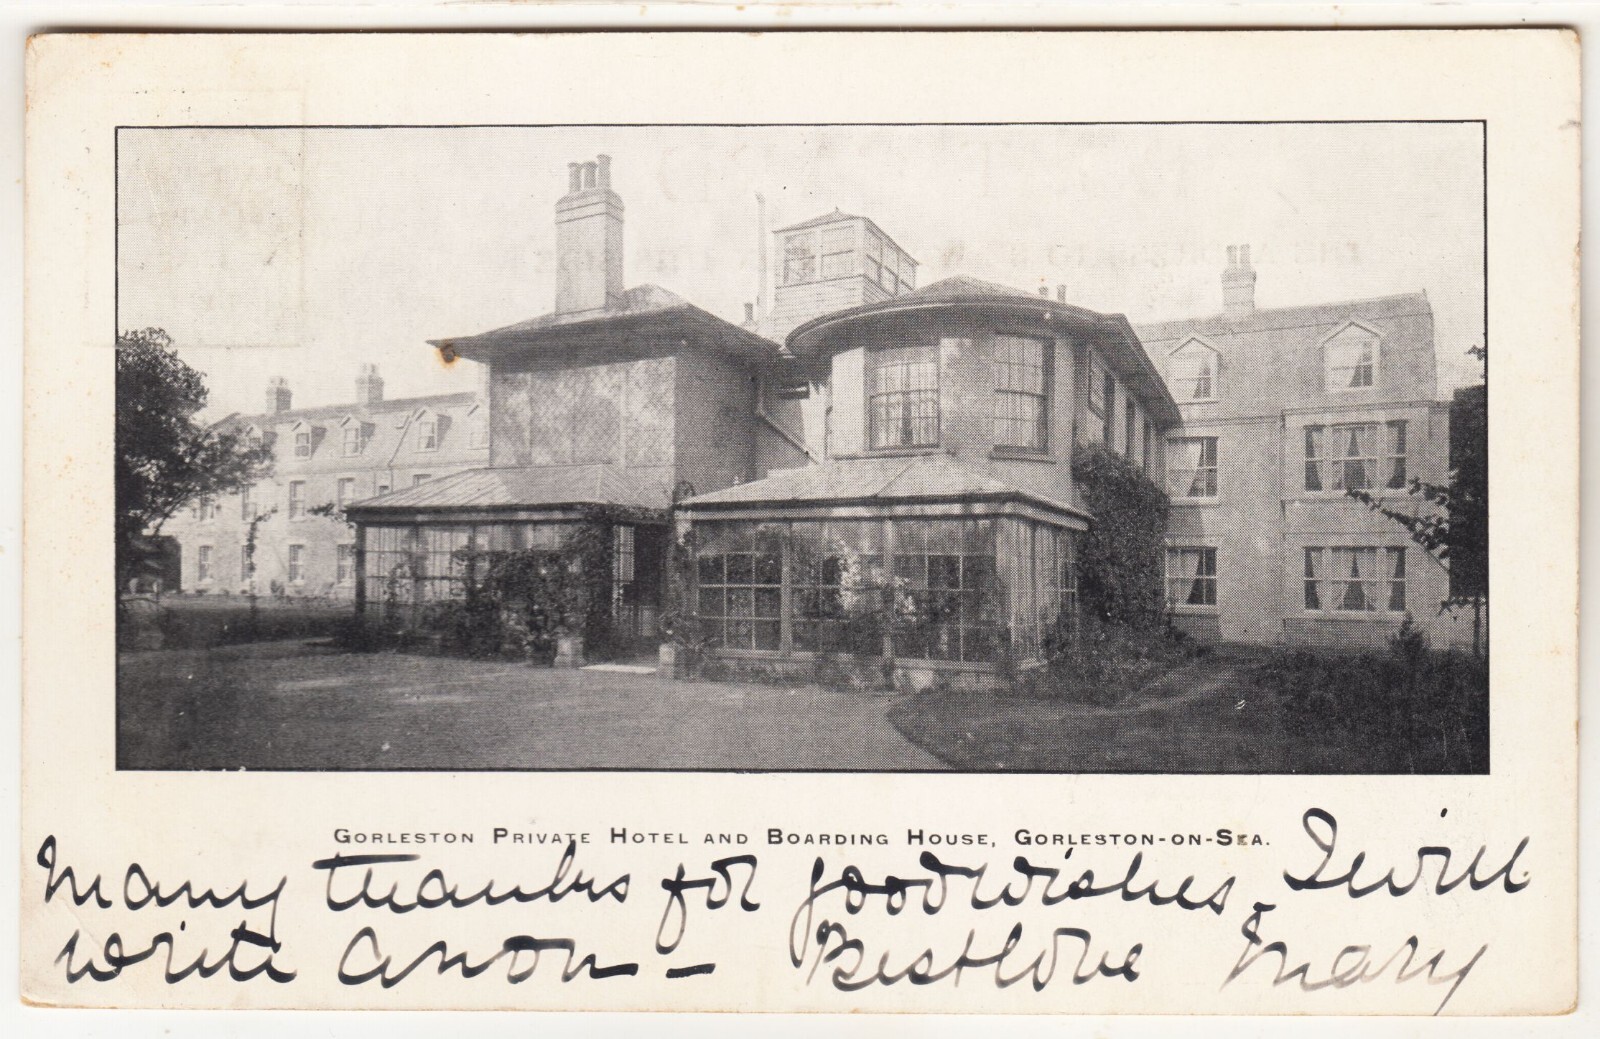 GORLESTON PRIVATE HOTEL AND BOARDING HOUSE, GORLESTON-ON-SEA.
Many thanks for good wishes, I will
write anon — Best love Mary